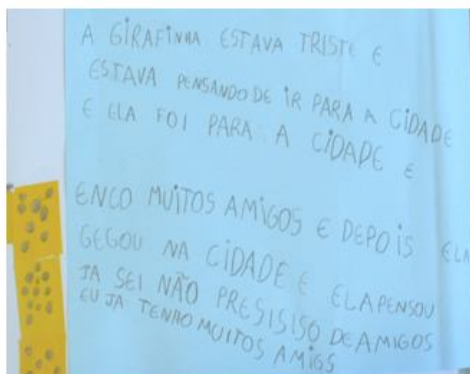 A GIRAFINHA ESTAVA TRISTE E
ESTAVA PENSANDO DE IR PARA A CIDADE
E ELA FOI PARA A CIDADE E
ENCO MUITOS AMIGOS E DEPOIS ELA
GEGOU NA CIDADE E ELA PENSOU
JA SEI NÃO PRESISISO DE AMIGOS
EU JA TENHO MUITOS AMIGS